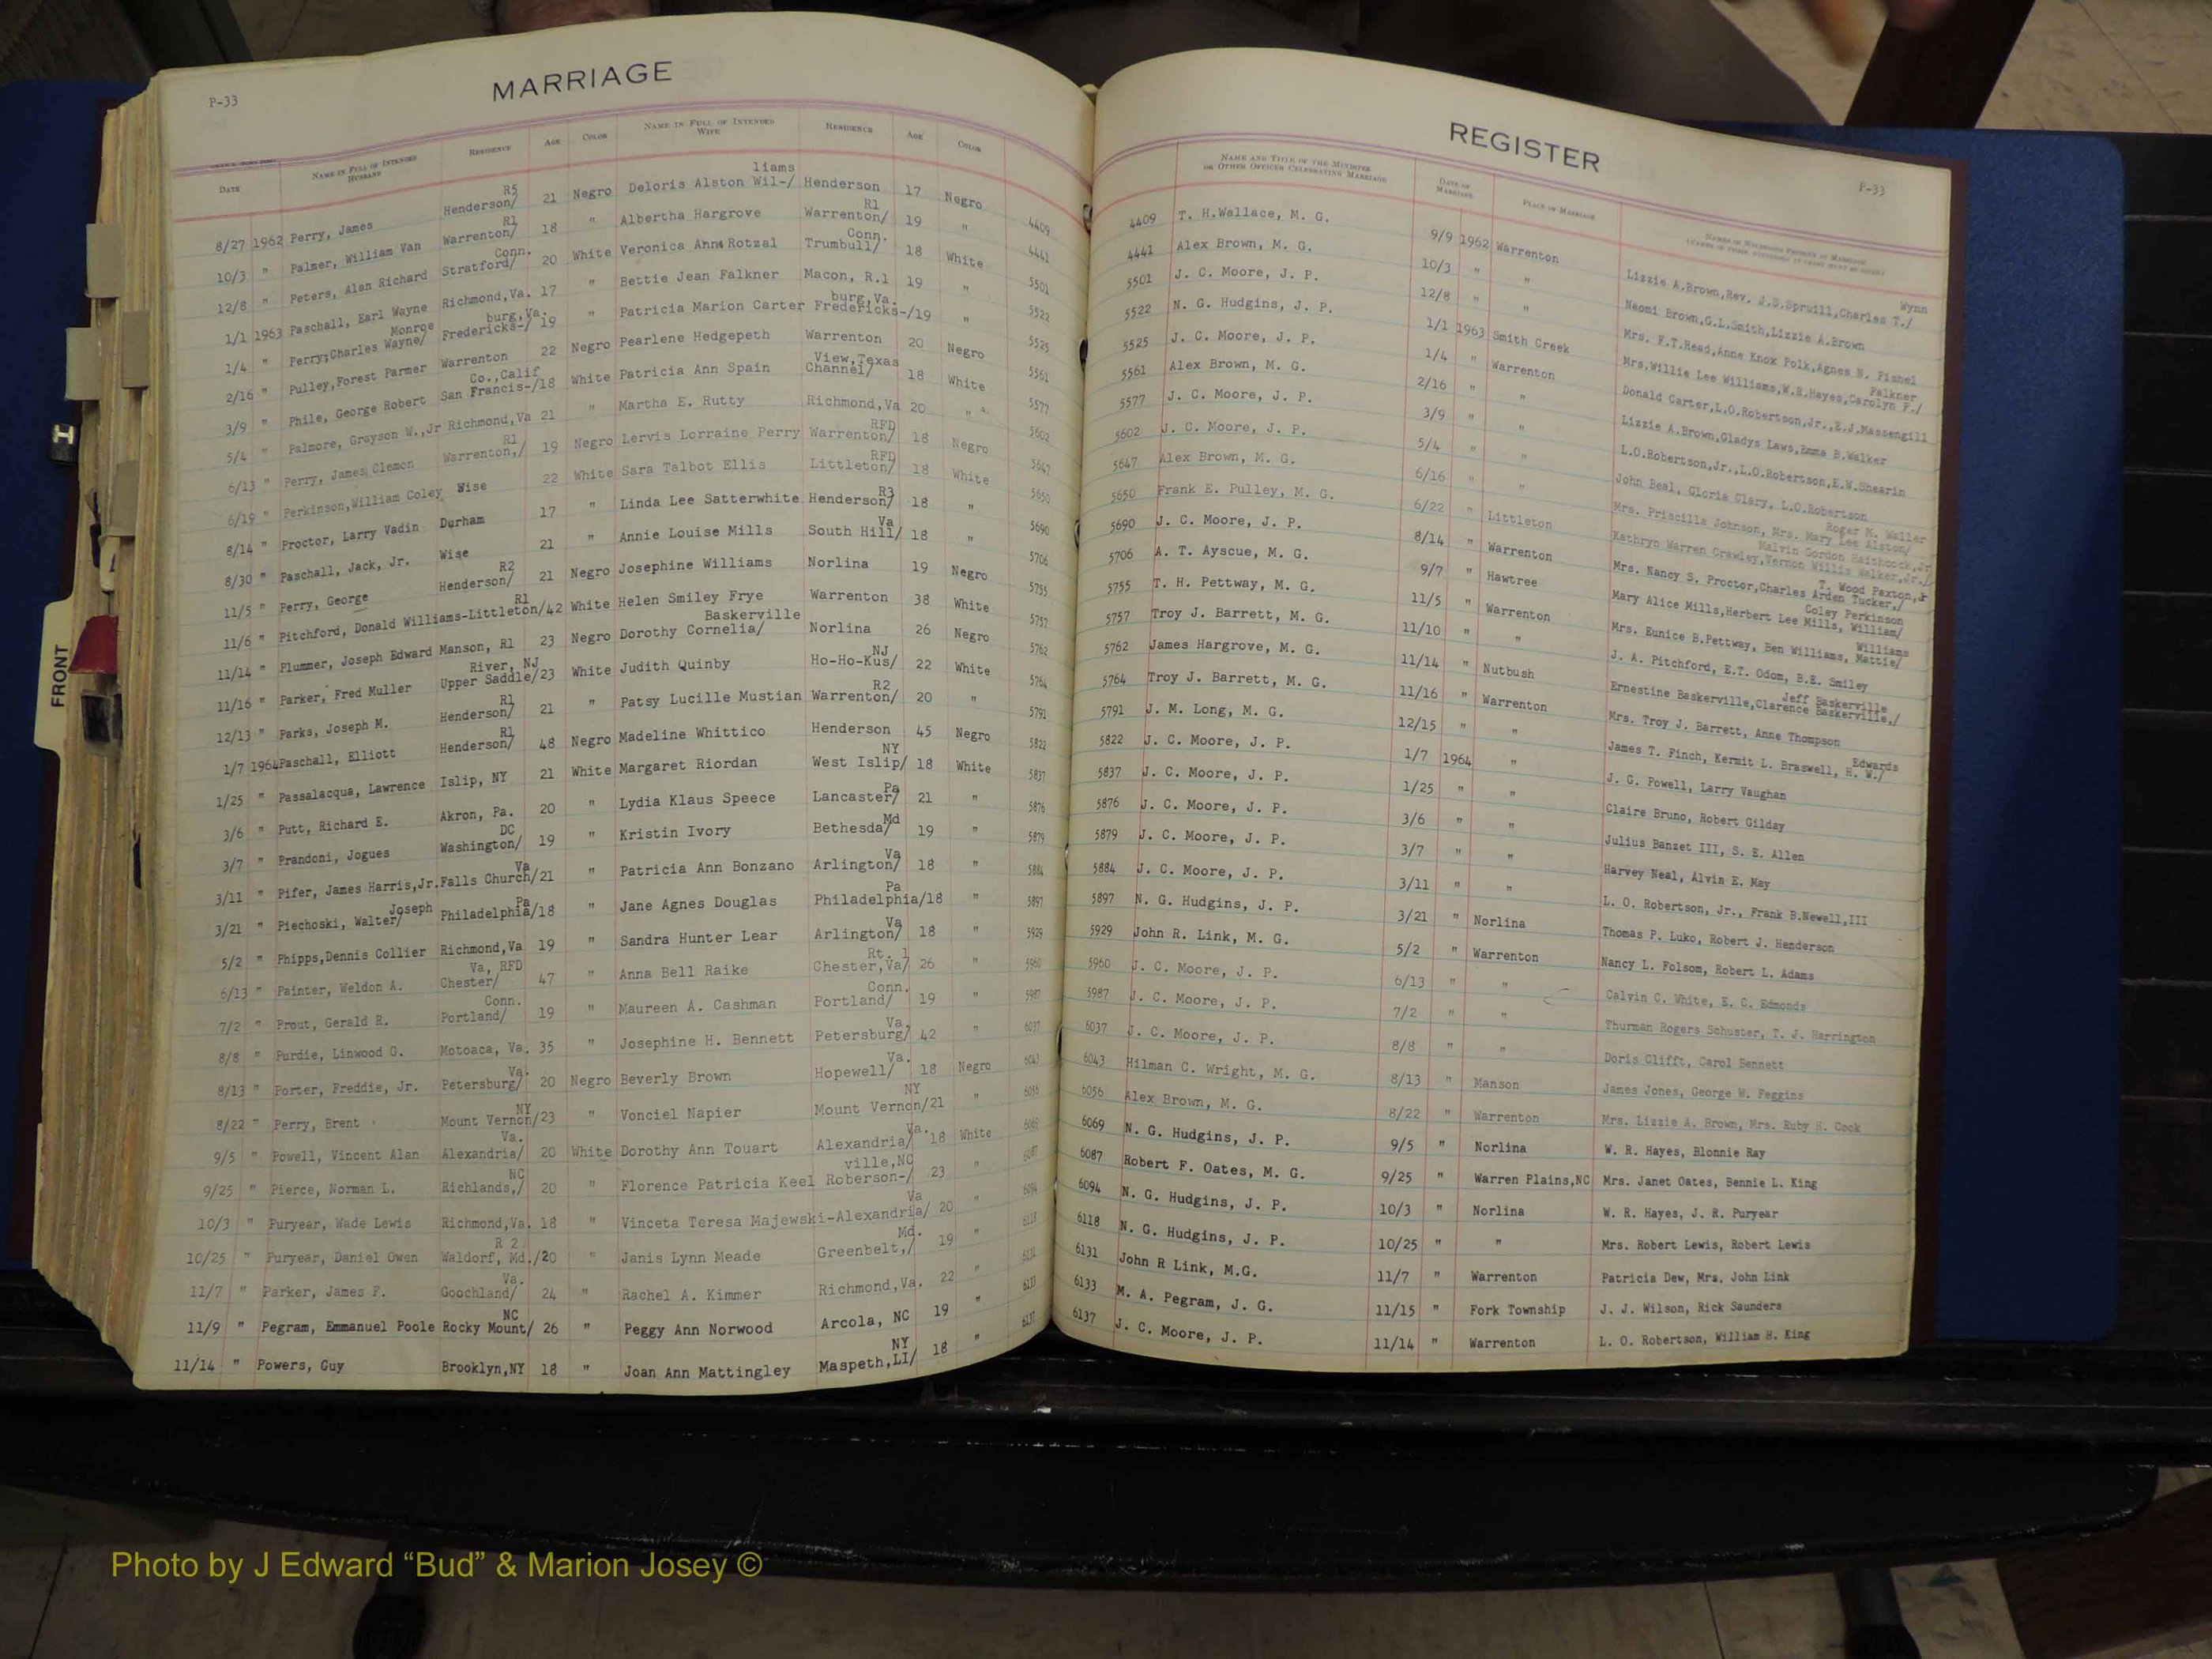 P-33
MARRIAGE
DATE NAME IN FULL OF INTENDED HUSBAND RESIDENCE AGE COLOR NAME IN FULL OF INTENDED WIFE RESIDENCE AGE COLOR
8/27 1962 Perry, James Henderson/ R5 21 Negro Deloris Alston Wil-/ liams Henderson 17 Negro 4409
10/3 " Palmer, William Van Warrenton/ R1 18 " Albertha Hargrove Warrenton/ R1 19 " 4441
12/8 " Peters, Alan Richard Stratford/ Conn. 20 White Veronica Ann Rotzal Trumbull/ Conn. 18 White 5501
1/1 1963 Paschall, Earl Wayne Richmond,Va. 17 " Bettie Jean Falkner Macon, R.1 19 " 5522
1/4 " Perry,Charles Wayne/ Monroe Fredericks-/ burg,Va. 19 " Patricia Marion Carter Fredericks-/ burg,Va. 19 " 5525
2/16 " Pulley,Forest Parmer Warrenton 22 Negro Pearlene Hedgepeth Warrenton 20 Negro 5561
3/9 " Phile, George Robert San Francis-/ Co.,Calif 18 White Patricia Ann Spain Channel/ View,Texas 18 White 5577
5/4 " Palmore, Grayson W.,Jr Richmond,Va 21 " Martha E. Rutty Richmond,Va 20 " 5602
6/13 " Perry, James Clemon Warrenton,/ R1 19 Negro Lervis Lorraine Perry Warrenton/ RFD 18 Negro 5647
6/19 " Perkinson,William Coley Wise 22 White Sara Talbot Ellis Littleton/ RFD 18 White 5650
8/14 " Proctor, Larry Vadin Durham 17 " Linda Lee Satterwhite Henderson/ R3 18 " 5690
8/30 " Paschall, Jack, Jr. Wise 21 " Annie Louise Mills South Hill/ Va 18 " 5706
11/5 " Perry, George Henderson/ R2 21 Negro Josephine Williams Norlina 19 Negro 5755
11/6 " Pitchford, Donald Williams-Littleton/ R1 42 White Helen Smiley Frye Warrenton 38 White 5757
11/14 " Plummer, Joseph Edward Manson, R1 23 Negro Dorothy Cornelia/ Baskerville Norlina 26 Negro 5762
11/16 " Parker, Fred Muller Upper Saddle/ River, NJ 23 White Judith Quinby Ho-Ho-Kus/ NJ 22 White 5764
12/13 " Parks, Joseph M. Henderson/ R1 21 " Patsy Lucille Mustian Warrenton/ R2 20 " 5791
1/7 1964 Paschall, Elliott Henderson/ R1 48 Negro Madeline Whittico Henderson 45 Negro 5822
1/25 " Passalacqua, Lawrence Islip, NY 21 White Margaret Riordan West Islip/ NY 18 White 5837
3/6 " Putt, Richard E. Akron, Pa. 20 " Lydia Klaus Speece Lancaster/ Pa 21 " 5876
3/7 " Prandoni, Jogues Washington/ DC 19 " Kristin Ivory Bethesda/ Md 19 " 5879
3/11 " Pifer, James Harris,Jr. Falls Church/ Va 21 " Patricia Ann Bonzano Arlington/ Va 18 " 5884
3/21 " Piechoski, Walter/ Joseph Philadelphia/ Pa 18 " Jane Agnes Douglas Philadelphia/ Pa 18 " 5897
5/2 " Phipps,Dennis Collier Richmond,Va 19 " Sandra Hunter Lear Arlington/ Va 18 " 5929
6/13 " Painter, Weldon A. Chester/ Va, RFD 47 " Anna Bell Raike Chester,Va/ Rt. 1 26 " 5960
7/2 " Prout, Gerald R. Portland/ Conn. 19 " Maureen A. Cashman Portland/ Conn. 19 " 5987
8/8 " Purdie, Linwood G. Motoaca, Va. 35 " Josephine H. Bennett Petersburg/ Va. 42 " 6037
8/13 " Porter, Freddie, Jr. Petersburg/ Va. 20 Negro Beverly Brown Hopewell/ Va. 18 Negro 6043
8/22 " Perry, Brent Mount Vernon/ NY 23 " Vonciel Napier Mount Vernon/ NY 21 " 6056
9/5 " Powell, Vincent Alan Alexandria/ Va. 20 White Dorothy Ann Touart Alexandria/ Va. 18 White 6069
9/25 " Pierce, Norman L. Richlands,/ NC 20 " Florence Patricia Keel Roberson-/ ville,NC 23 " 6087
10/3 " Puryear, Wade Lewis Richmond,Va. 18 " Vinceta Teresa Majewski-Alexandria/ Va 20 " 6094
10/25 " Puryear, Daniel Owen Waldorf, Md./ R 2 20 " Janis Lynn Meade Greenbelt,/ Md. 19 " 6118
11/7 " Parker, James F. Goochland/ Va. 24 " Rachel A. Kimmer Richmond,Va. 22 " 6131
11/9 " Pegram, Emmanuel Poole Rocky Mount/ NC 26 " Peggy Ann Norwood Arcola, NC 19 " 6133
11/14 " Powers, Guy Brooklyn,NY 18 " Joan Ann Mattingley Maspeth,LI/ NY 18 " 6137
REGISTER
P-33
NAME AND TITLE OF THE MINISTER OR OTHER OFFICER CELEBRATING MARRIAGE DATE OF MARRIAGE PLACE OF MARRIAGE NAMES OF WITNESSES PRESENT AT MARRIAGE
4409 T. H.Wallace, M. G. 9/9 1962 Warrenton Lizzie A.Brown,Rev. J.B.Spruill,Charles T./ Wynn
4441 Alex Brown, M. G. 10/3 " " Neomi Brown,G.L.Smith,Lizzie A.Brown
5501 J. C. Moore, J. P. 12/8 " " Mrs. F.T.Read,Anne Knox Polk,Agnes N. Fishel
5522 N. G. Hudgins, J. P. 1/1 1963 Smith Creek Mrs,Willie Lee Williams,W.R.Hayes,Carolyn F./ Falkner
5525 J. C. Moore, J. P. 1/4 " Warrenton Donald Carter,L.O.Robertson,Jr.,E.J.Massengill
5561 Alex Brown, M. G. 2/16 " " Lizzie A.Brown,Gladys Laws,Emma B.Walker
5577 J. C. Moore, J. P. 3/9 " " L.O.Robertson,Jr.,L.O.Robertson,E.W.Shearin
5602 J. C. Moore, J. P. 5/4 " " John Beal, Gloria Clary, L.O.Robertson
5647 Alex Brown, M. G. 6/16 " " Mrs. Priscilla Johnson, Mrs. Mary Lee Alston/ Roger M. Waller
5650 Frank E. Pulley, M. G. 6/22 " Littleton Kathryn Warren Crawley,Vernon Willis Walker,Jr./ Malvin Gordon Haithcock,Jr
5690 J. C. Moore, J. P. 8/14 " Warrenton Mrs. Nancy S. Proctor,Charles Arden Tucker,/ T. Wood Paxton,Jr
5706 A. T. Ayscue, M. G. 9/7 " Hawtree Mary Alice Mills,Herbert Lee Mills, William/ Coley Perkinson
5755 T. H. Pettway, M. G. 11/5 " Warrenton Mrs. Eunice B.Pettway, Ben Williams, Mattie/ Williams
5757 Troy J. Barrett, M. G. 11/10 " " J. A. Pitchford, E.T. Odom, B.E. Smiley
5762 James Hargrove, M. G. 11/14 " Nutbush Ernestine Baskerville,Clarence Baskerville,/ Jeff Baskerville
5764 Troy J. Barrett, M. G. 11/16 " Warrenton Mrs. Troy J. Barrett, Anne Thompson
5791 J. M. Long, M. G. 12/15 " " James T. Finch, Kermit L. Braswell, H. W./ Edwards
5822 J. C. Moore, J. P. 1/7 1964 " J. G. Powell, Larry Vaughan
5837 J. C. Moore, J. P. 1/25 " " Claire Bruno, Robert Gilday
5876 J. C. Moore, J. P. 3/6 " " Julius Banzet III, S. E. Allen
5879 J. C. Moore, J. P. 3/7 " " Harvey Neal, Alvin E. May
5884 J. C. Moore, J. P. 3/11 " " L. O. Robertson, Jr., Frank B.Newell,III
5897 N. G. Hudgins, J. P. 3/21 " Norlina Thomas P. Luko, Robert J. Henderson
5929 John R. Link, M. G. 5/2 " Warrenton Nancy L. Folsom, Robert L. Adams
5960 J. C. Moore, J. P. 6/13 " " Calvin C. White, E. C. Edmonds
5987 J. C. Moore, J. P. 7/2 " " Thurman Rogers Schuster, T. J. Harrington
6037 J. C. Moore, J. P. 8/8 " " Doris Clifft, Carol Bennett
6043 Hilman C. Wright, M. G. 8/13 " Manson James Jones, George W. Feggins
6056 Alex Brown, M. G. 8/22 " Warrenton Mrs. Lizzie A. Brown, Mrs. Ruby H. Cook
6069 N. G. Hudgins, J. P. 9/5 " Norlina W. R. Hayes, Blonnie Ray
6087 Robert F. Oates, M. G. 9/25 " Warren Plains,NC Mrs. Janet Oates, Bennie L. King
6094 N. G. Hudgins, J. P. 10/3 " Norlina W. R. Hayes, J. R. Puryear
6118 N. G. Hudgins, J. P. 10/25 " " Mrs. Robert Lewis, Robert Lewis
6131 John R Link, M.G. 11/7 " Warrenton Patricia Dew, Mrs. John Link
6133 M. A. Pegram, J. G. 11/15 " Fork Township J. J. Wilson, Rick Saunders
6137 J. C. Moore, J. P. 11/14 " Warrenton L. O. Robertson, William H. King
FRONT
H
Photo by J Edward “Bud” & Marion Josey ©